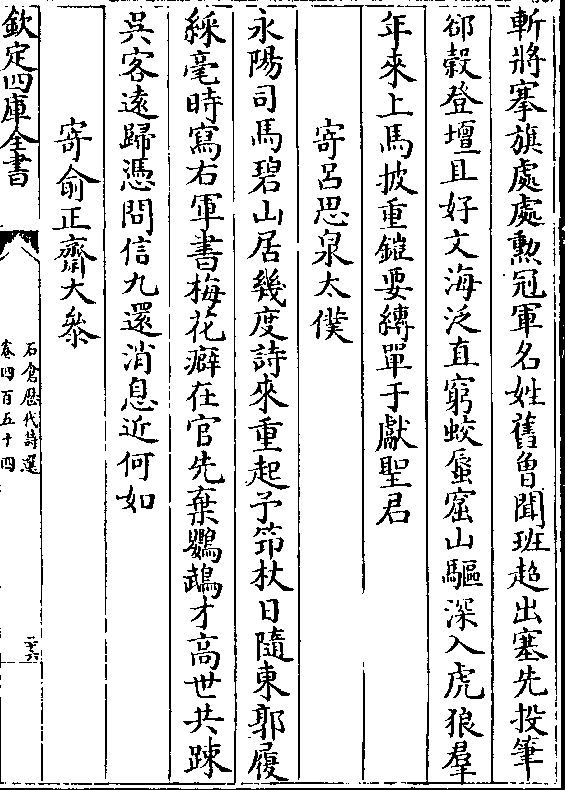 斬將搴旗處處勲冠軍名姓舊曾聞班超出塞先投筆
郤縠登壇且好文海泛直窮蛟蜃窟山驅深入虎狼羣
年來上馬披重鎧要縛單于獻聖君
寄呂思泉太僕
永陽司馬碧山居幾度詩來重起予笻杖日隨東郭履
綵毫時寫右軍書梅花癖在官先棄鸚鵡才高世共踈
吳客遠歸憑問信九還消息近何如
寄俞正齋大叅
欽定四庫全書
石倉歷代詩選
卷四百五十四
二十六